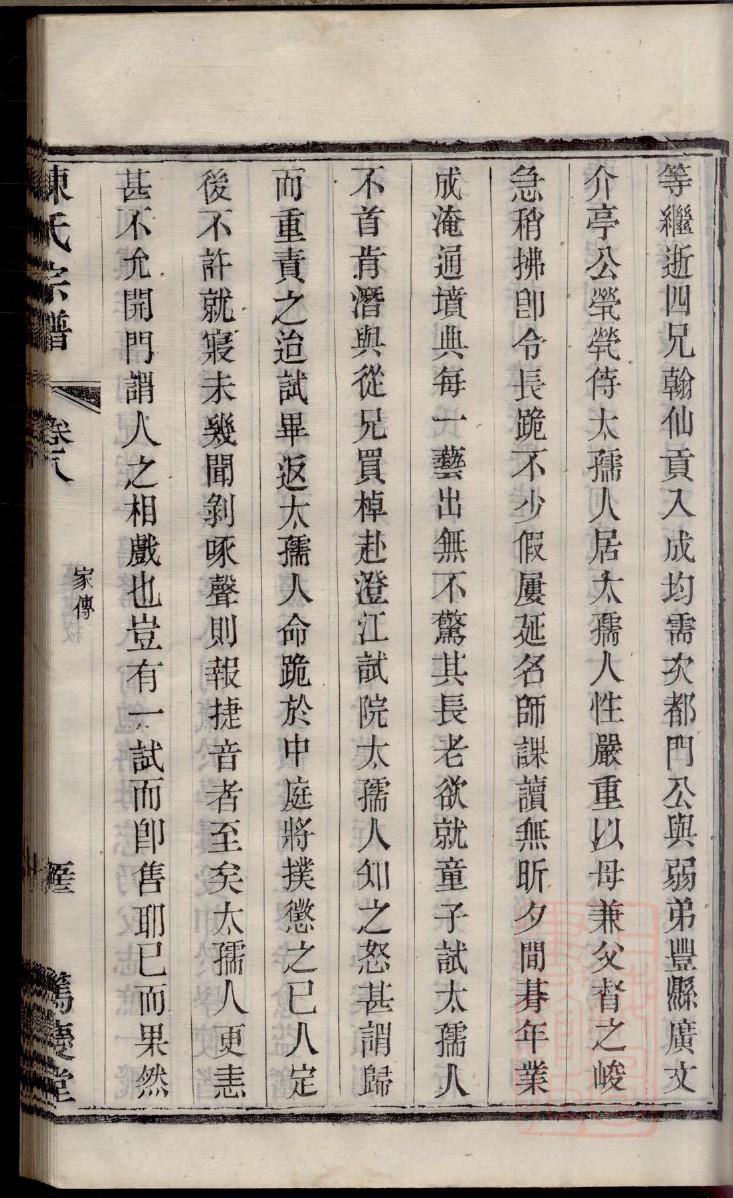 等繼逝四兄翰仙貢入成均需次都門公與弱弟豐縣廣文
介亭公煢煢侍太孺人居太孺人性嚴重以母兼父督之峻
急稍拂卽令長跪不少假屢延名師課讀無昕夕間朞年業
成淹通墳典每一藝出無不驚其長老欲就童子試太孺人
不首肯潛與從兄買棹赴澄江試院太孺人知之怒甚謂歸
而重責之迨試畢返太孺人命跪於中庭將撲懲之已人定
後不許就寢未幾聞剝啄聲則報捷音者至矣太孺人更恚
甚不允開門謂人之相戲也豈有一試而卽售耶已而果然
陳氏宗譜 卷八 家傳 篤慶堂